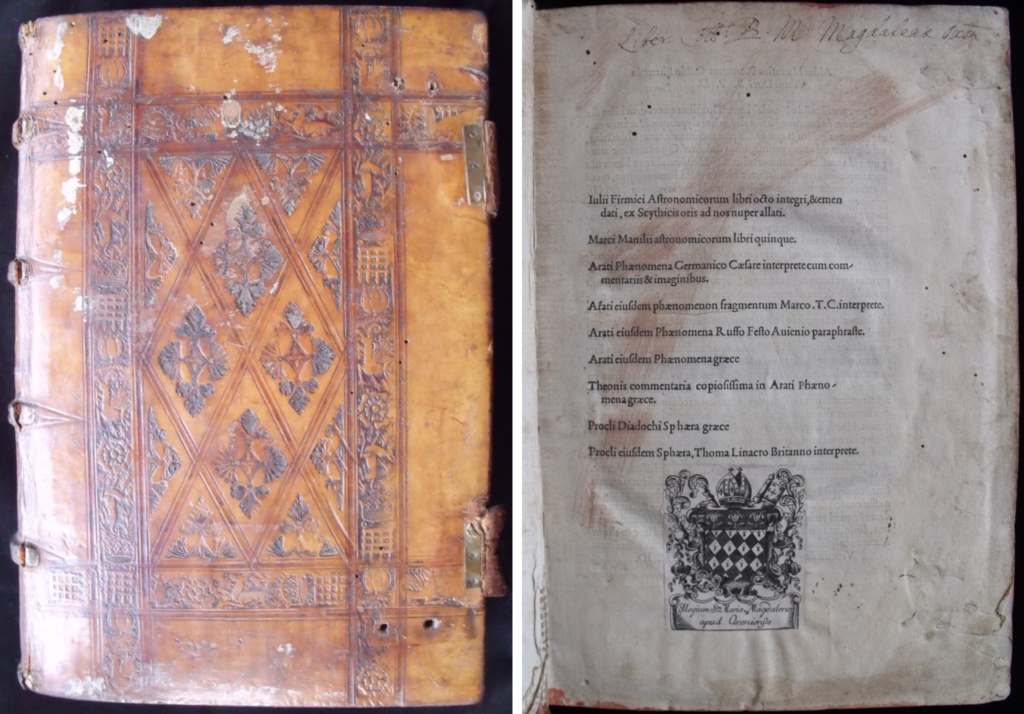 Liber M Magdalenæ
Iulii Firmici Aſtronomicorum libri octo integri,&emen
dati, ex Scythicis oris ad nos nuper allati.
Marci Manilii aſtronomicorum libri quinque.
Arati Phænomena Germanico Cæſare interprete cum com-
mentariis & imaginibus.
Arati eiuſdem phænomenon fragmentum Marco.T.C.interprete.
Arati eiuſdem Phænomena Ruffo Feſto Auienio paraphraſte.
Arati eiuſdem Phænomena græce
Theonis commentaria copioſiſſima in Arati Phæno-
mena græce.
Procli Diadochi Sphæra græce
Procli eiuſdem Sphæra, Thoma Linacro Britanno interprete.
Collegium Mariæ Magdalenæ
apud Oxonienſes